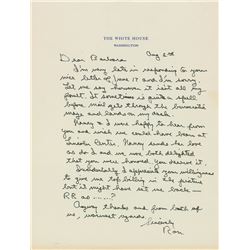 THE WHITE HOUSE
WASHINGTON
Aug 6th
Dear Barbara
I'm very late in responding to your
nice letter of June 17 and I'm sorry.
Let me say however it isn't all my
fault. It sometimes is quite a spell
before mail gets through the bureaucratic
maze and lands on my desk.
Nancy & I were happy to hear from
you and wish we could have been at
Lincoln Center. Nancy sends her love
as do I and we are both delighted
that you were honored. You deserve it.
Incidentally I appreciate your willingness
to give me top billing in the picture
but it might have set me back
RR as ......?
Anyway thanks and from both of
us, warmest regards.
Sincerely
Ron